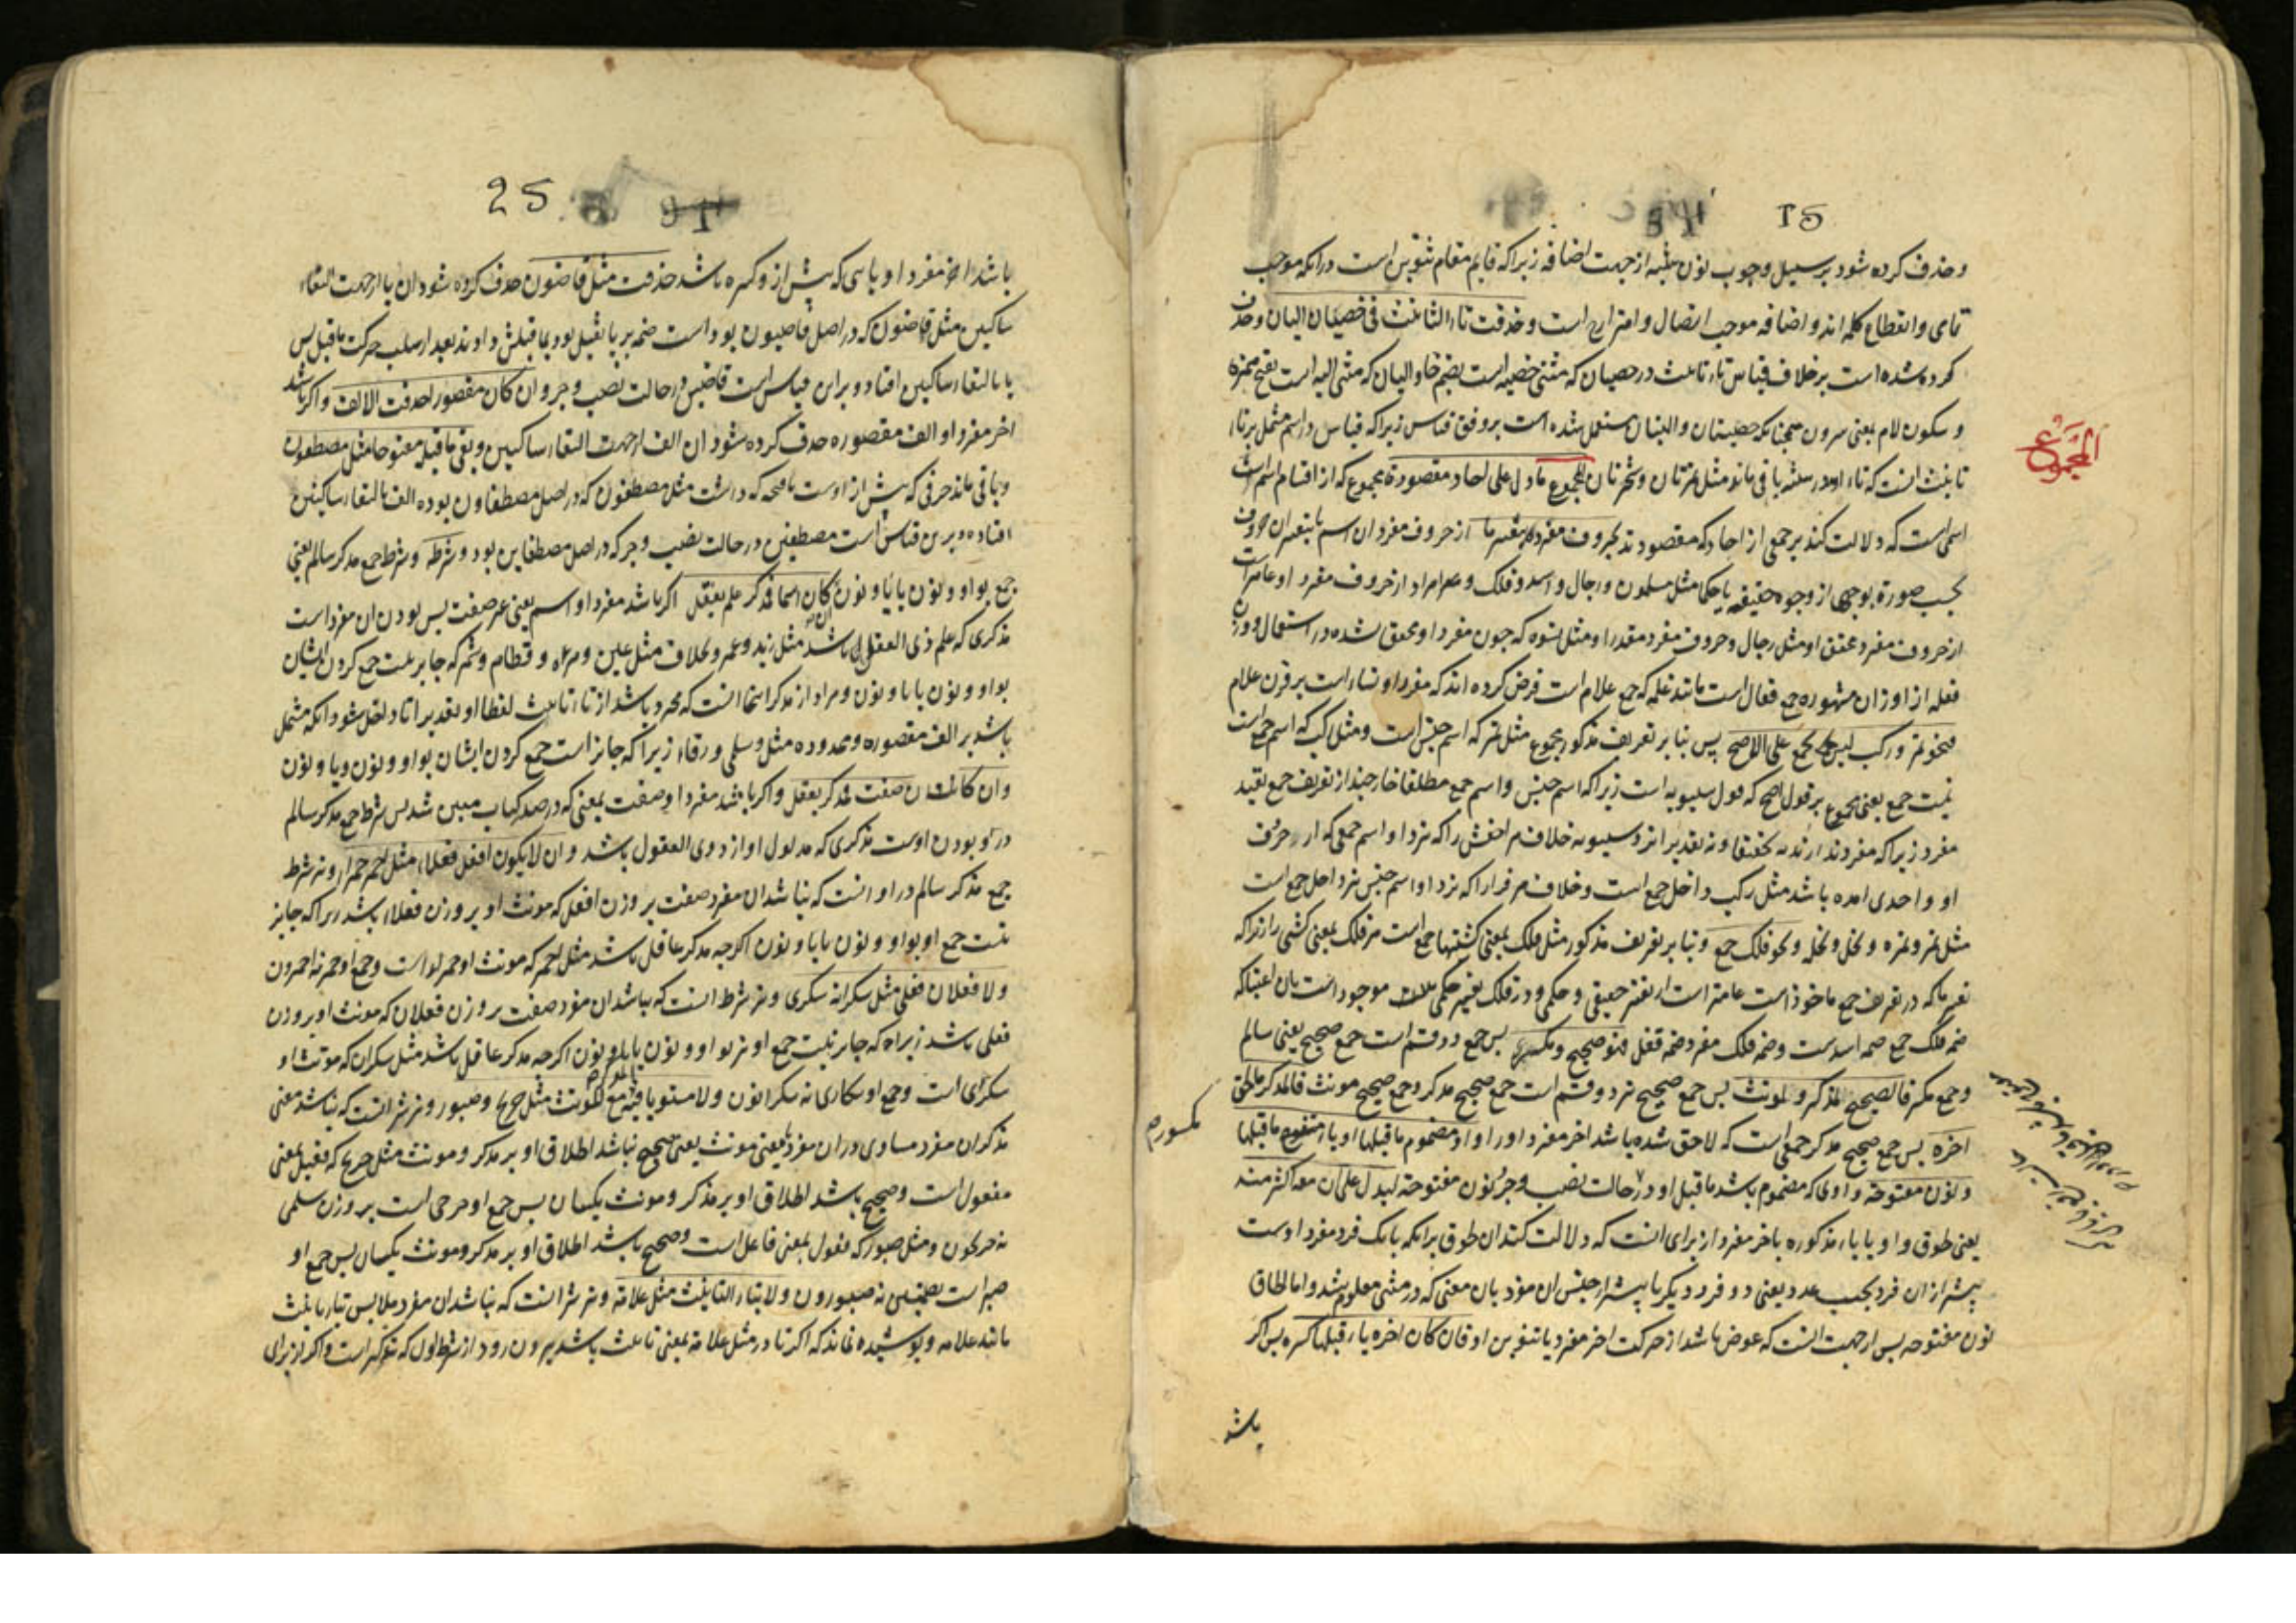 15
وحذف کرده شود بر سبیل وجوب نون تثنیه از جهت اضافه زیرا که قایم مقام تنوین است در انکه موجب
تمامی وانقطاع کلمه اند و اضافه موجب اتصال و امتزاج است وحذفت تاء التانیث فی خصیان والیان وحذف
کرده شده است بر خلاف قیاس تاء تانیث در خصیان که مثنی خصیه است بضم خا و الیان که مثنی الیه است بفتح همزه
و سکون لام بمعنی سرون همچنانکه خصیتان و الیتان مستعمل شده است بر وفق قیاس زیرا که قیاس در اسم مشتمل بر تاء
تانیث انست که تاء او در تثنیه باقی ماند مثل تمرتان و شجرتان المجموع مادل علی احاد مقصودة مجموع که از اقسام اسم است
المجموع
اسمی است که دلالت کند بر جمعی از احاد که مقصودند بحروف مفرده بتغییر ما از حروف مفرد ان اسم بتغییر ان حروف
بحسب صورة بوجهی از وجوه حقیقة یا حکما مثل مسلمون و رجال و اسد و فلک و مراد از حروف مفرد او عامتر است
از حروف مفرد محقق او مثل رجال وحروف مفرد مقدر او مثل نسوه که چون مفرد او محقق نشده در استعمال و وزن
فعله از اوزان مشهوره جمع فعال است مانند غلمه که جمع غلام است فرض کرده اند که مفرد او نساء است بر وزن غلام
فنحو تمر و رکب لیس بجمع علی الاصح پس بنا بر تعریف مذکور مجموع مثل تمر که اسم جنس است ومثل رکب که اسم جمع است
نیست جمع یعنی مجموع بر قول اصح که قول سیبویه است زیرا که اسم جنس و اسم جمع مطلقا خارجند از تعریف جمع بقید
مفرد زیرا که مفرد ندارند نه تحقیقا و نه تقدیرا نزد سیبویه خلاف مر اخفش را که نزد او اسم جمعی که از حروف
او واحدی امده باشد مثل رکب داخل جمع است و خلاف مر فرا را که نزد او اسم جنس نیز داخل جمع است
مثل تمر و تمره و نخل و نخله و نحو فلک جمع و بنا بر تعریف مذکور مثل فلک بمعنی کشتیها جمع است مر فلک بمعنی کشتی را زیرا که
تغییر ما که در تعریف جمع ماخوذ است عامتر است از تغییر حقیقی و حکمی و در فلک تغییر حکمی موجود است بان اعتبار که
ضمه فلک جمع ضمه اسد است و ضمه فلک مفرد ضمه قفل فهو صحیح و مکسر پس جمع دو قسم است جمع صحیح یعنی سالم
وجمع مکسر فالصحیح لمذکر ولمونث پس جمع صحیح نیز دو قسم است جمع صحیح مذکر وجمع صحیح مونث فالمذکر مالحق
اخره پس جمع صحیح مذکر جمعی است که لاحق شده باشد اخر مفرد او را واو مضموم ماقبلها او یاء مفتوح ماقبلها
مکسور م
ونون مفتوحة واوی که مضموم باشد ماقبل او در حالت نصب و جر نون مفتوحة لیدل علی ان معه اکثر منه
یعنی لحوق واو یا یاء مذکوره باخر مفرد از برای انست که دلالت کند ان لحوق بر انکه با یک فرد مفرد اوست
بیشتر از ان فرد بحسب عدد یعنی دو فرد دیگر یا بیشتر از جنس ان مفرد بان معنی که در مثنی معلوم شد واما لحاق
نون مفتوحه پس از جهت انست که عوض باشد از حرکت اخر مفرد یا تنوین او فان کان اخره یاء قبلها کسره پس اکر
باشد
25
باشد اخر مفرد او یاسی که پیش از و کسره باشد حذفت مثل قاضون حذف کرده شود ان یا از جهت التقاء
ساکنین مثل قاضون که در اصل قاضیون بود است ضمه بر یا ثقیل بود بما قبلش دادند بعد از سلب حرکت ماقبل پس
یا بالتقاء ساکنین افتاد و بر این قیاس است قاضین در حالت نصب و جر وان کان مقصورا حذفت الالف واکر باشد
اخر مفرد او الف مقصوره حذف کرده شود ان الف از جهت التقاء ساکنین وبقی ماقبله مفتوحا مثل مصطفون
وباقی ماند حرفی که پیش از اوست بافتحه که داشت مثل مصطفون که در اصل مصطفاون بوده الف بالتقاء ساکنین
افتاده و برین قیاس است مصطفین در حالت نصب و جر که در اصل مصطفاین بود وشرطه وشرط جمع مذکر سالم یعنی
جمع بواو و نون یا یا و نون ان کان اسما فمذکر علم یعقل اکر باشد مفرد او اسم یعنی غیر صفت پس بودن ان مفرد است
مذکری که علم ذی العقول باشد مثل زید و عمر و بخلاف مثل عین و مرءه و قطام و شمر که جایز نیست جمع کردن ایشان
بواو و نون یا یا و نون ومراد از مذکر اینجا انست که مجرد باشد از تاء تانیث لفظا او تقدیرا تا داخل شود انکه مشتمل
باشد بر الف مقصوره و ممدوده مثل سلمی و رقاء زیرا که جایز است جمع کردن ایشان بواو و نون ویا و نون
وان کان صفت فمذکر یعقل واکر باشد مفرد او صفت بمعنی که در صدر کتاب مبین شد پس شرط جمع مذکر سالم
در او بودن اوست مذکری که مدلول او از ذوی العقول باشد وان لا یکون افعل فعلاء مثل احمر حمراء ونیز شرط
جمع مذکر سالم در او انست که نباشد ان مفرد صفت بر وزن افعل که مونث او بر وزن فعلاء باشد زیرا که جایز
نیست جمع او بواو و نون یا یا و نون اکرچه مذکر عاقل باشد مثل احمر که مونث او حمراء است وجمع او حمر نه احمرون
ولا فعلان فعلی مثل سکران سکری ونیز شرط انست که نباشد ان مفرد صفت بر وزن فعلان که مونث او بر وزن
فعلی باشد زیرا که جایز نیست جمع او نیز بواو و نون یا یا و نون اکرچه مذکر عاقل باشد مثل سکران که مونث او
سکری است وجمع او سکاری نه سکرانون ولا مستویا فیه مع المونث مثل جریح وصبور ونیز شرط انست که نباشد معنی
مذکر ان مفرد مساوی در ان مفرد بامعنی مونث یعنی صحیح نباشد اطلاق او بر مذکر و مونث مثل جریح که فعیل بمعنی
مفعول است وصحیح باشد اطلاق او بر مذکر و مونث یکسان پس جمع او جرحی است بر وزن سلمی
نه جریحون ومثل صبور که فعول بمعنی فاعل است وصحیح باشد اطلاق او بر مذکر و مونث یکسان پس جمع او
صبر است بضمتین نه صبورون ولا بتاء التانیث مثل علامة ونیز شرط انست که نباشد ان مفرد ملابس بتاء تانیث
مانند علامه وپوشیده نماند که اکر تا در مثل علامة بمعنی تانیث باشد بیرون رود از شرط اول که تذکیر است واکر از برای